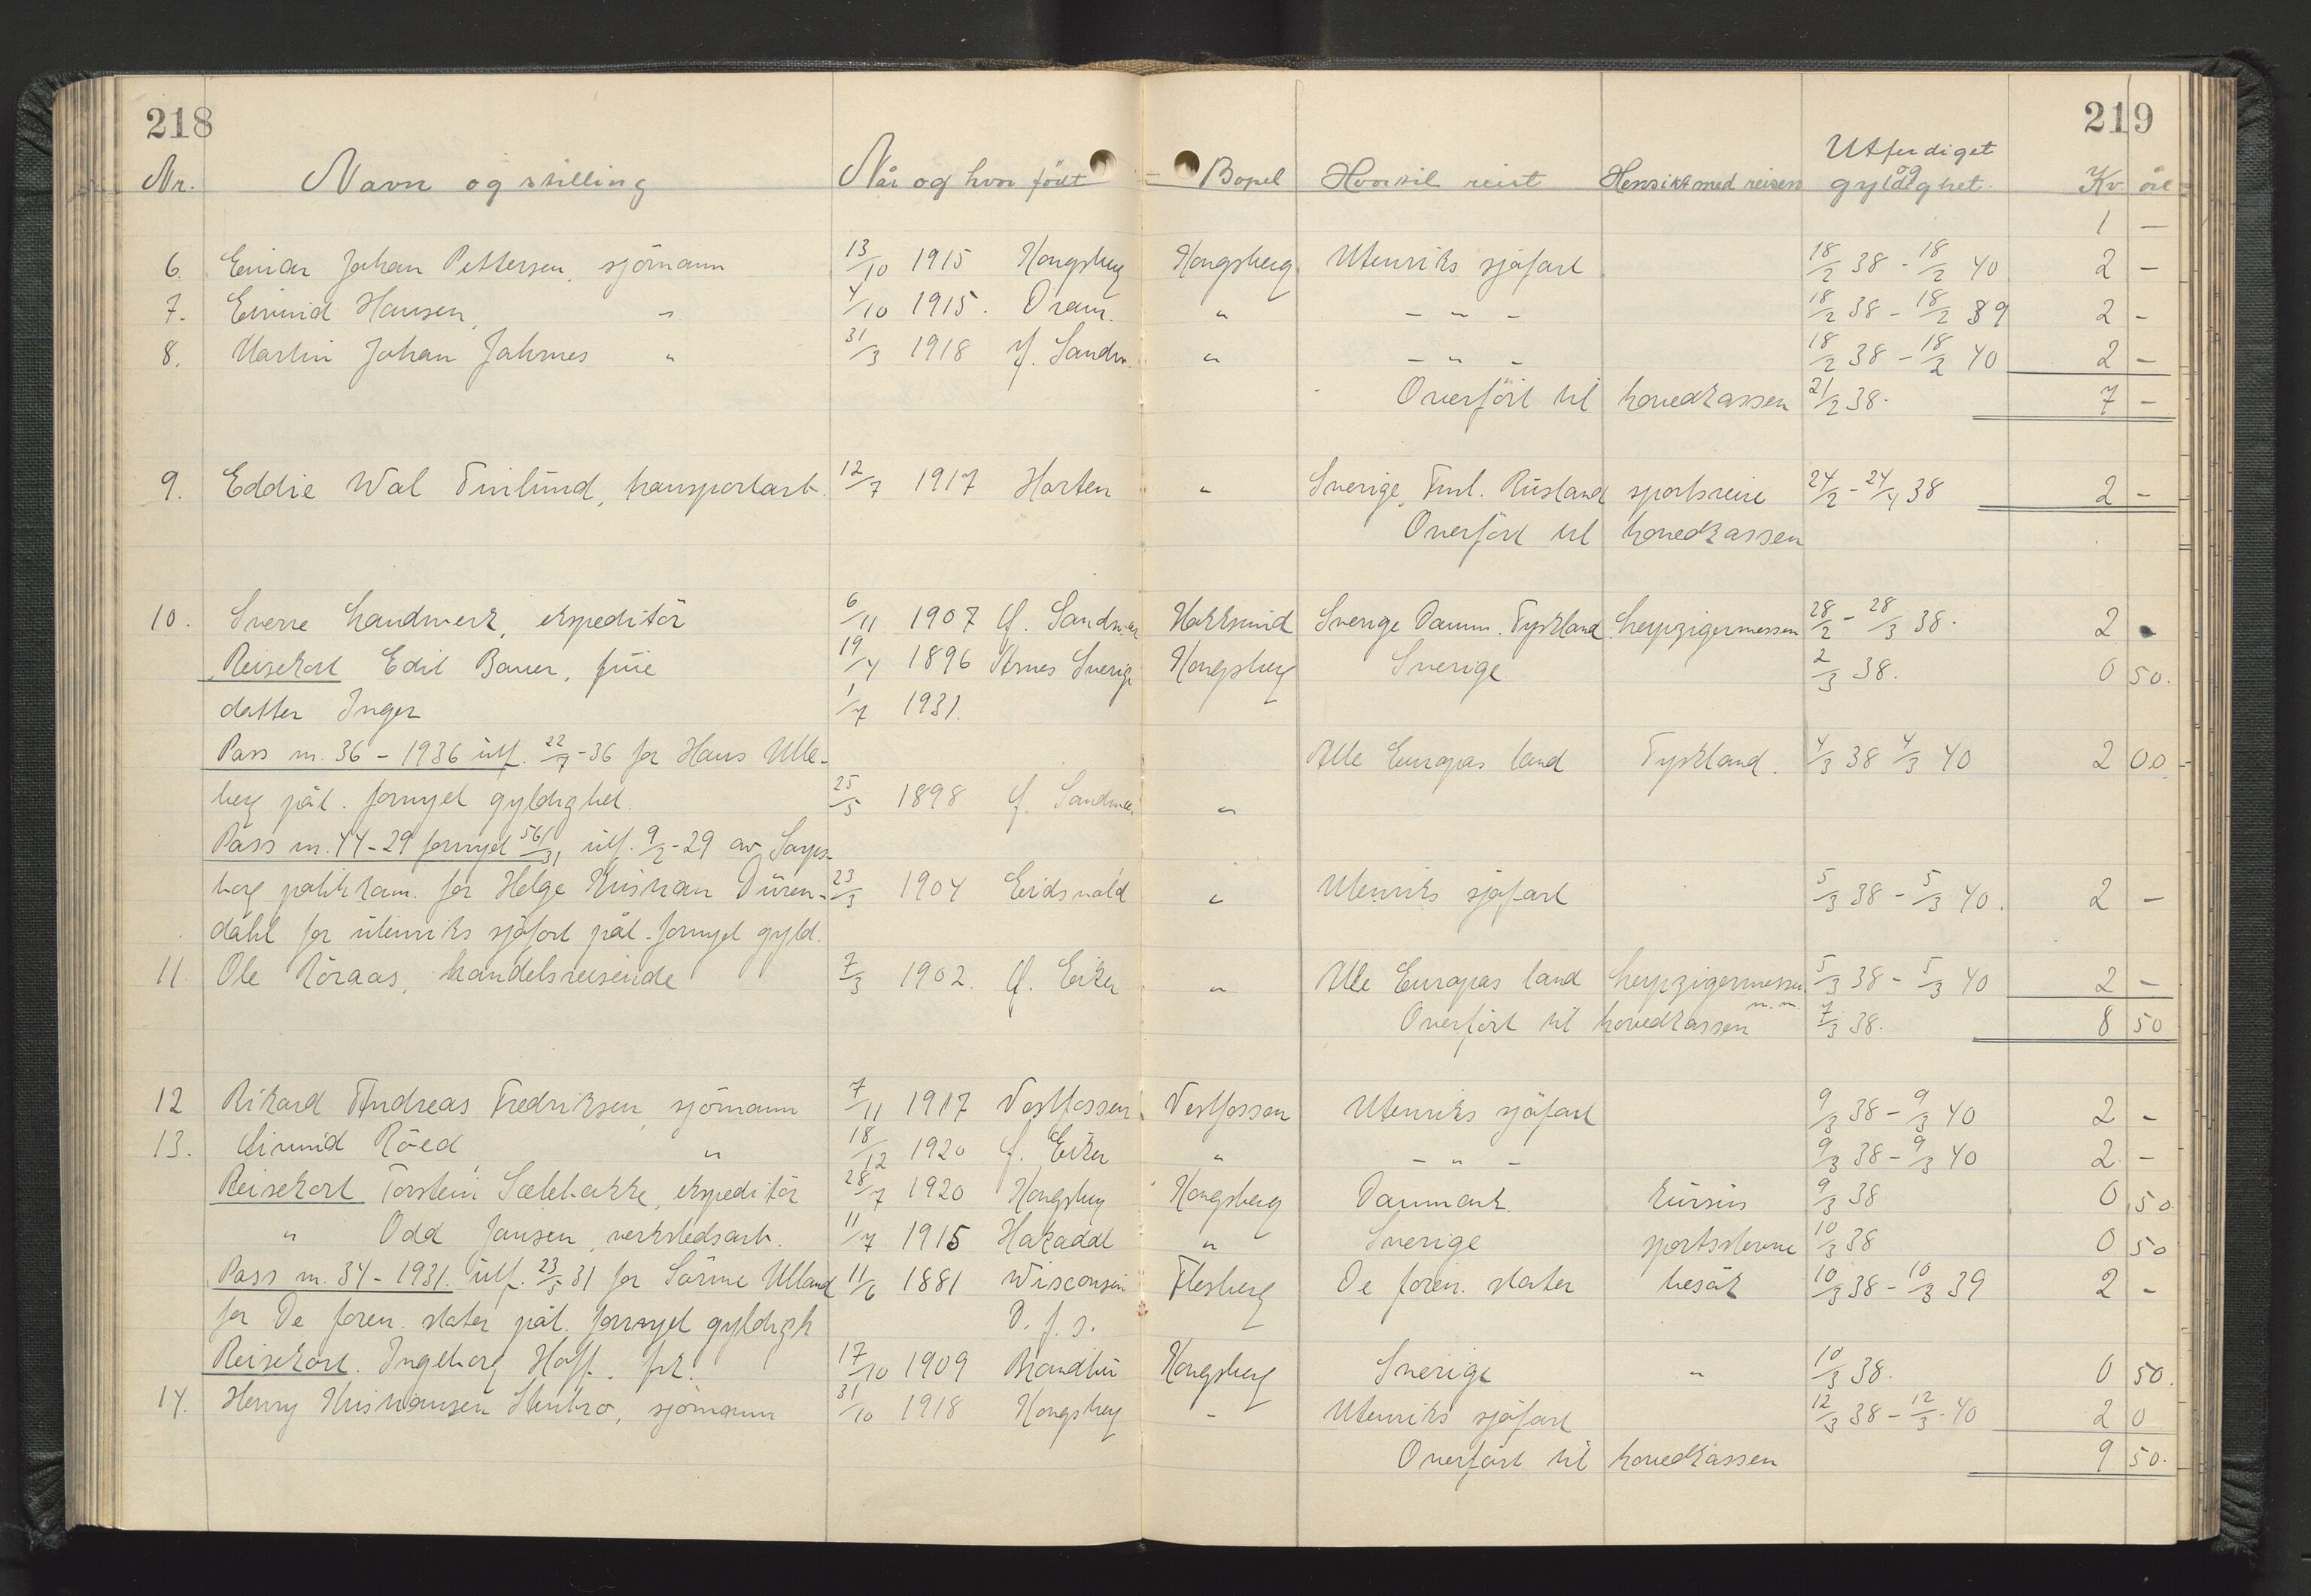 218
219
Nr. Navn og stilling Når og hvor født Bopel Hvortil reist Hensikt med reisen Utferdiget og gyldighet. Kr. øre
1 —
6. Einar Johan Pettersen, sjömann 13/10 1915 Kongsberg Kongsberg Utenriks sjöfart 18/2 38 - 18/2 40 2 -
7. Eivind Hansen, " 4/10 1915. Dram. " - " - 18/2 38 - 18/2 39 2 -
8. Martin Johan Jahrnes " 31/3 1918 Y. Sandsv. " - " - 18/2 38 - 18/2 40 2 -
Overfört til hovedkassen 21/2 38. 7 -
9. Eddie Wal Finlund, transportarb. 12/7 1917 Horten " Sverige, Finl. Rusland sportsreise 24/2 - 24/4 38 2 -
Overfört til hovedkassen
10. Sverre Landverk, ekspeditör 6/11 1907 Y. Sandsvær Hokksund Sverige Danm. Tyskland Leipzigermessen 28/2 - 28/3 38. 2
Reisekort Edit Bauer, frue 19/4 1896 Sverige Kongsberg Sverige 2/3 38. 0 50.
datter Inger 1/7 1931.
Pass nr. 36 - 1936 utf. 22/7 - 36 for Hans Ulle- Alle Europas land Tyskland. 4/3 38 4/3 40 2 00
berg påt. fornyet gyldighet. 25/5 1898 Y. Sandsvær "
Pass nr. 44 - 29 fornyet 56/31, utf. 9/2 - 29 av Sarps-
borg politikam. for Helge Kristian Düren- 23/3 1904 Eidsvold " Utenriks sjöfart 5/3 38 - 5/3 40. 2 -
dahl for utenriks sjöfart påt. fornyet gyld.
11. Ole Röraas, handelsreisende 7/3 1902. Ö. Eiker " Alle Europas land Leipzigermessen m.m. 5/3 38 - 5/3 40 2 -
Overfört til hovedkassen 7/3 38. 8 50
12 Rikard Andreas Fredriksen, sjömann 7/11 1917 Vestfossen Vestfossen Utenriks sjöfart 9/3 38 - 9/3 40 2 -
13. Röed " 18/12 1920 Ö. Eiker " - " - 9/3 38 - 9/3 40 2 -
Reisekort Torstein Sælebakke, ekspeditör 28/7 1920 Kongsberg Kongsberg Danmark kursus 9/3 38 0 50
" Odd Jansen, verkstedsarb. 11/7 1915 Hakadal " Sverige sportsstevne 10/3 38 0 50
Pass nr. 34 - 1931. utf. 23/5 31 for Sörine Ulland 11/6 1881 Wisconsin Flesberg De foren. stater besök 10/3 38 - 10/3 39 2 -
for De foren. stater påt. fornyet gyldigh D. f. s.
Reisekort. Ingeborg Hoff. frk. 17/10 1909 Brandbu Kongsberg Sverige " 10/3 38. 0 50.
14. Henry Kristiansen Stubro, sjömann 31/10 1918 Kongsberg - Utenriks sjöfart 12/3 38 - 12/3 - 40 2 0
Overfört til hovedkassen 9 50.